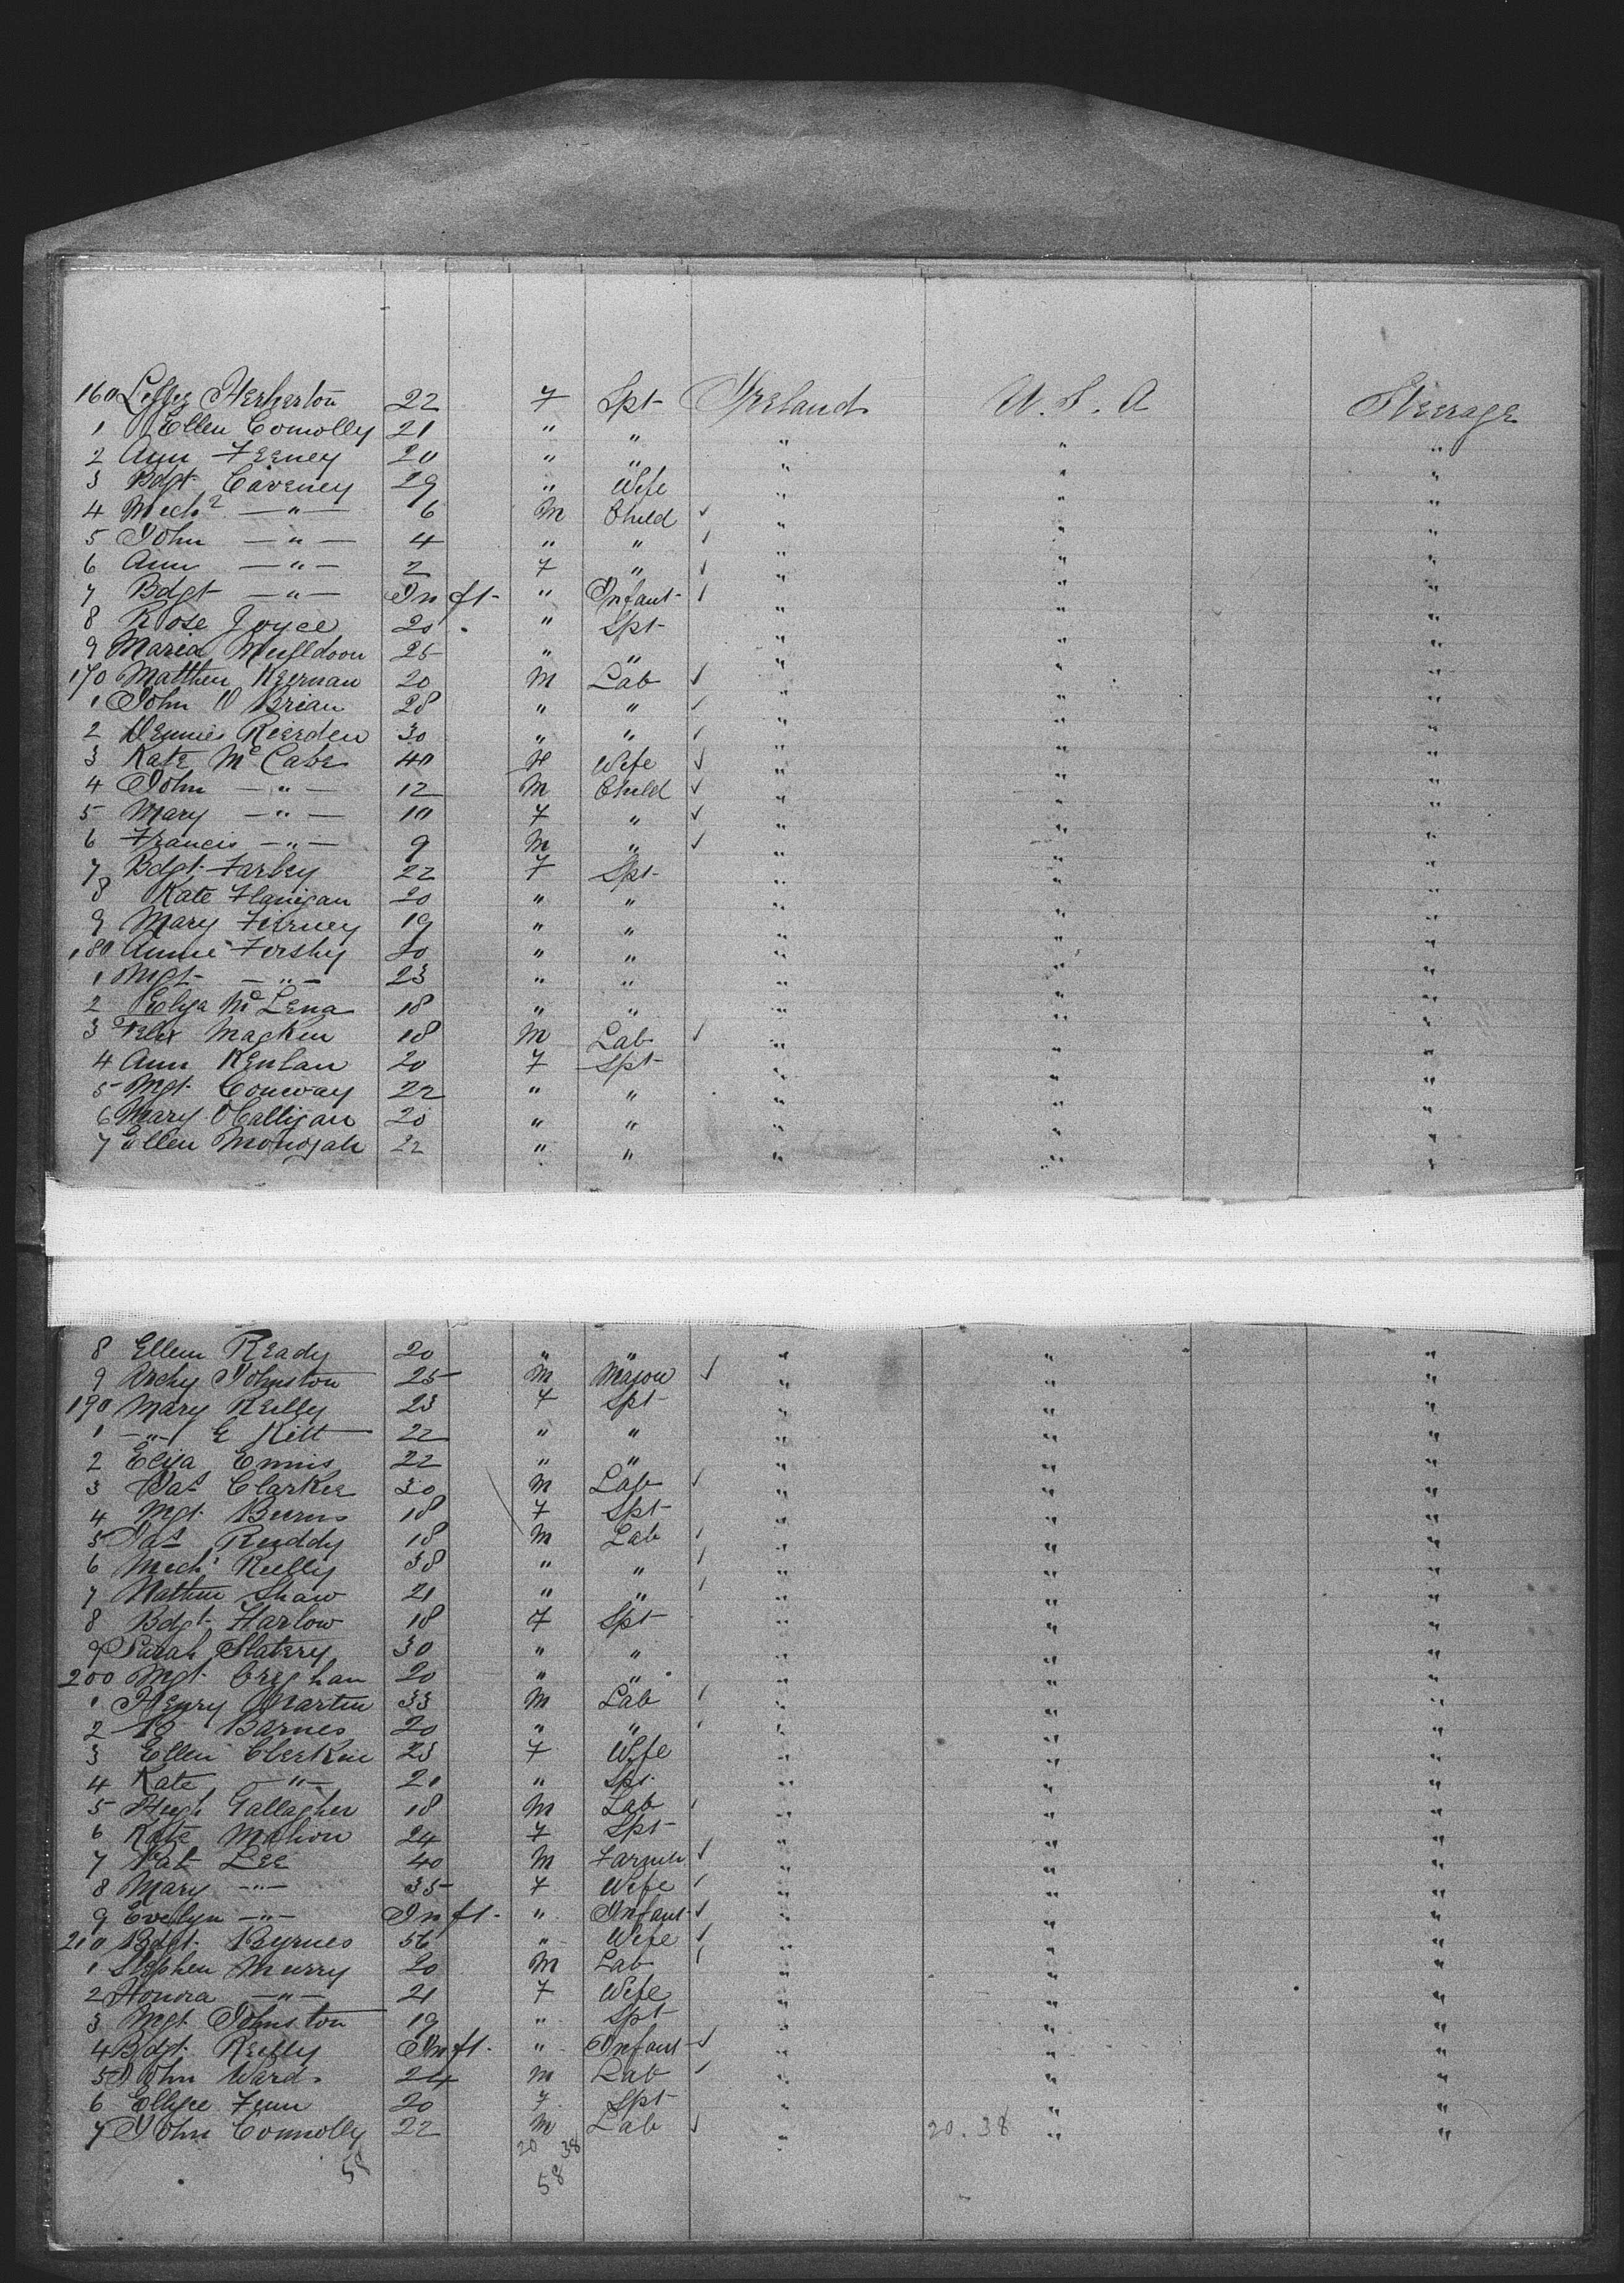 160 Herberton 22 F Spt Ireland U.S.A Steerage
1 Ellen Connolly 21 " " " " "
2 Ann Feeney 20 " " " " "
3 Bdgt Caveney 29 " Wife " " "
4 Mich — " — 6 M Child " " "
5 John — " — 4 " " " " "
6 Ann — " — 2 F " " " "
7 Bdgt — " — Inft. " Infant " " "
8 Rose Joyce 20 " Spt " " "
9 Maria Mulldoon 25 " " " " "
170 Matthew Keernan 20 M Lab " " "
1 John O Brian 28 " " " " "
2 Dennis Reerden 30 " " " " "
3 Kate McCabe 40 Wife " " "
4 John — " — 12 M Child " " "
5 Mary — " — 10 F " " " "
6 Francis — " — 9 M " " " "
7 Bdgt. Farley 22 F Spt " " "
8 Kate Flanigan 20 " " " " "
9 Mary 19 " " " " "
180 Annie 20 " " " " "
1 Mgt — " — 23 " " " " "
2 Mc Lena 18 " " " " "
3 Felix Macken 18 M Lab " " "
4 Ann Kenlan 20 F Spt " " "
5 Mgt. Conway 22 " " " " "
6 Mary OCalligan 20 " " " " "
7 Ellen 22 " " " " "
8 Ellen Ready 20 " " " " "
9 Archy Johnston 25 M Mason " " "
190 Mary Reilly 23 F Spt " " "
1 — " — E Kilt 22 " " " " "
2 Eliza Ennis 22 " " " " "
3 Clarkee 30 M Lab " " "
4 Mgt. Burns 18 F Spt " " "
5 Jas Ruddy 18 M Lab " " "
6 Mich Reilly 38 " " " " "
7 Shaw 21 " " " " "
8 Bdgt. Harlow 18 F Spt " " "
9 Sarah Slatery 30 " " " " "
200 Mgt. Creghan 20 " " " " "
1 Henry Martin 33 M Lab " " "
2 Barnes 20 " " " " "
3 Ellen Clerkin 23 F Wife " " "
4 Kate — " — 21 " Spt " " "
5 Hugh Gallagher 18 M Lab " " "
6 Kate Mahon 24 F Spt " " "
7 Pat Lee 40 M " " "
8 Mary — " — 35 F Wife " " "
9 Evelyn — " — Inft. " Infant " " "
210 Bdgt. Byrnes 56 " Wife " " "
1 Stephen Murry 20 M Lab " " "
2 Honora — " — 21 F Wife " " "
3 Mgt. Johnston 19 " Spt " " "
4 Bdgt. Reilly Inft. " Infant " " "
5 John Ward 24 M Lab " " "
6 20 F Spt " " "
7 John Connolly 22 M Lab " 20.38 " "
20 38
58 58